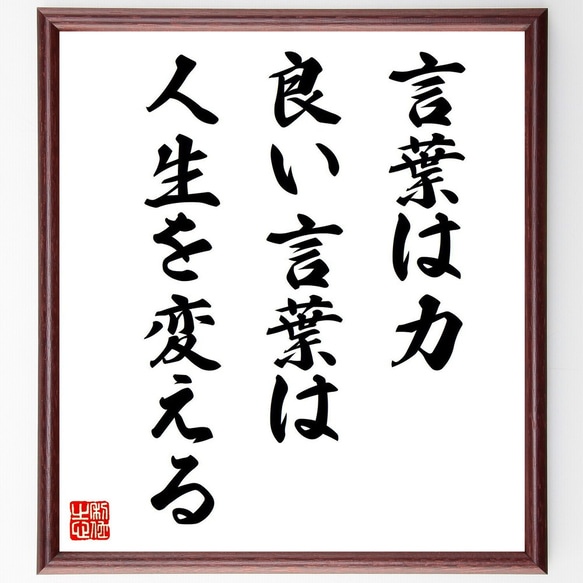 言葉は力
良い言葉は
人生を変える